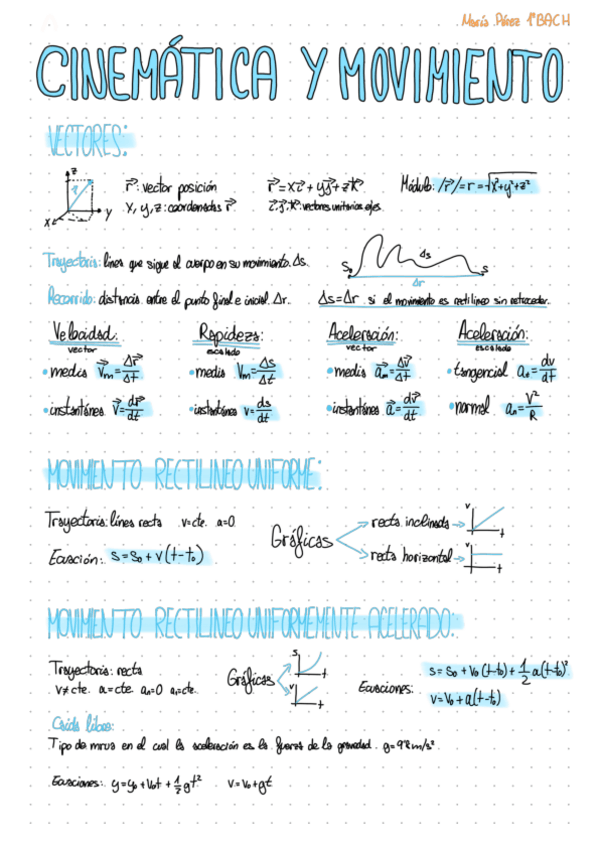 María Pérez 1ºBACH
CINEMÁTICA Y MOVIMIENTO
VECTORES:
z
y
x
r⃗: vector posición
x, y, z: coordenadas r⃗
r⃗ = xi⃗ + yj⃗ + zk⃗
i⃗, j⃗, k⃗: vectores unitarios ejes.
Módulo: /r⃗/ = r = √x²+y²+z²
Trayectoria: línea que sigue el cuerpo en su movimiento. Δs.
S₀ Δs S
Δr
Recorrido: distancia entre el punto final e inicial. Δr. Δs=Δr si el movimiento es rectilíneo sin retroceder.
Velocidad: Rapidez: Aceleración: Aceleración:
vector escalado vector escalado
• media v⃗m = Δr⃗/Δt • media Vm = Δs/Δt • media a⃗m = Δv⃗/Δt • tangencial
• instantánea v⃗ = dr⃗/dt • instantánea v = ds/dt • instantánea a⃗ = dv⃗/dt • normal an = V²/R
MOVIMIENTO RECTILINEO UNIFORME:
Trayectoria: línea recta v=cte. a=0
Ecuación: s = s₀ + v(t-t₀)
Gráficas
recta inclinada → v t
recta horizontal → v t
MOVIMIENTO RECTILINEO UNIFORMEMENTE ACELERADO:
Trayectoria: recta
v≠cte. a=cte. an=0
Gráficas
s t
v t
Ecuaciones:
s = s₀ + v₀ (t-t₀) + 1/2 a(t-t₀)²
v = v₀ + a(t-t₀)
Caída libre:
Tipo de mrua en el cual la aceleración es la fuerza de la gravedad. g=9'8m/s²
Ecuaciones: y = y₀ + v₀t + 1/2 gt² v = v₀ + gt